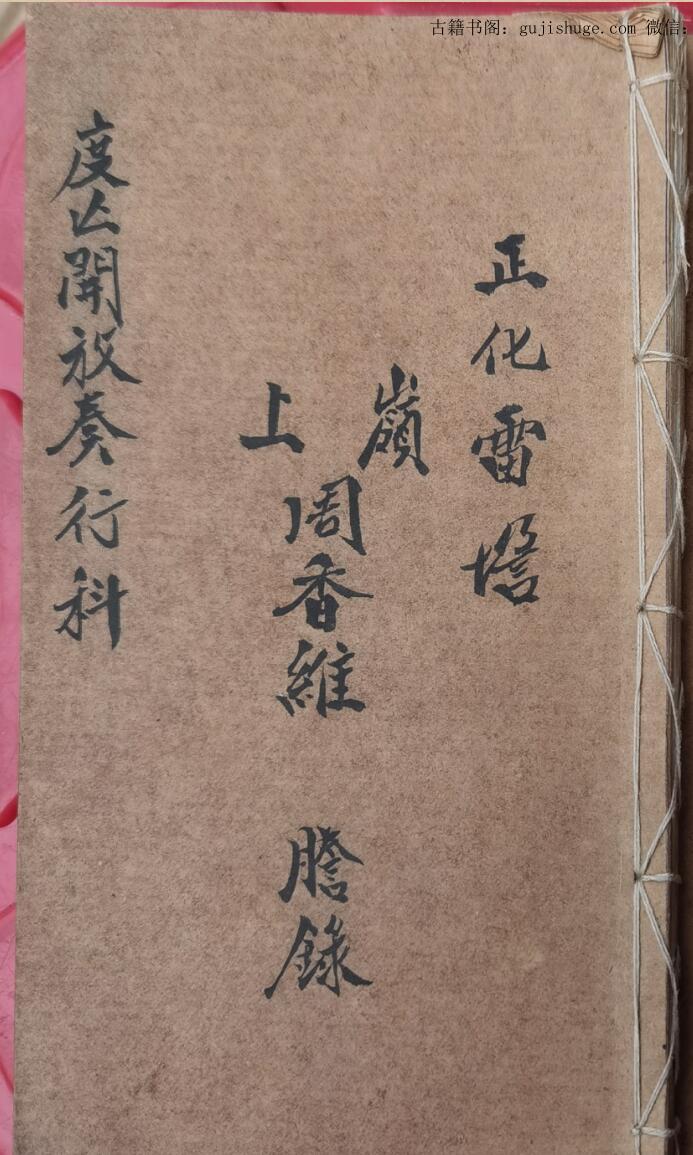 古籍书阁：gujishuge.com 微信：
正化雷壇
嶺上
周香維 謄錄
度亾開放奏行科